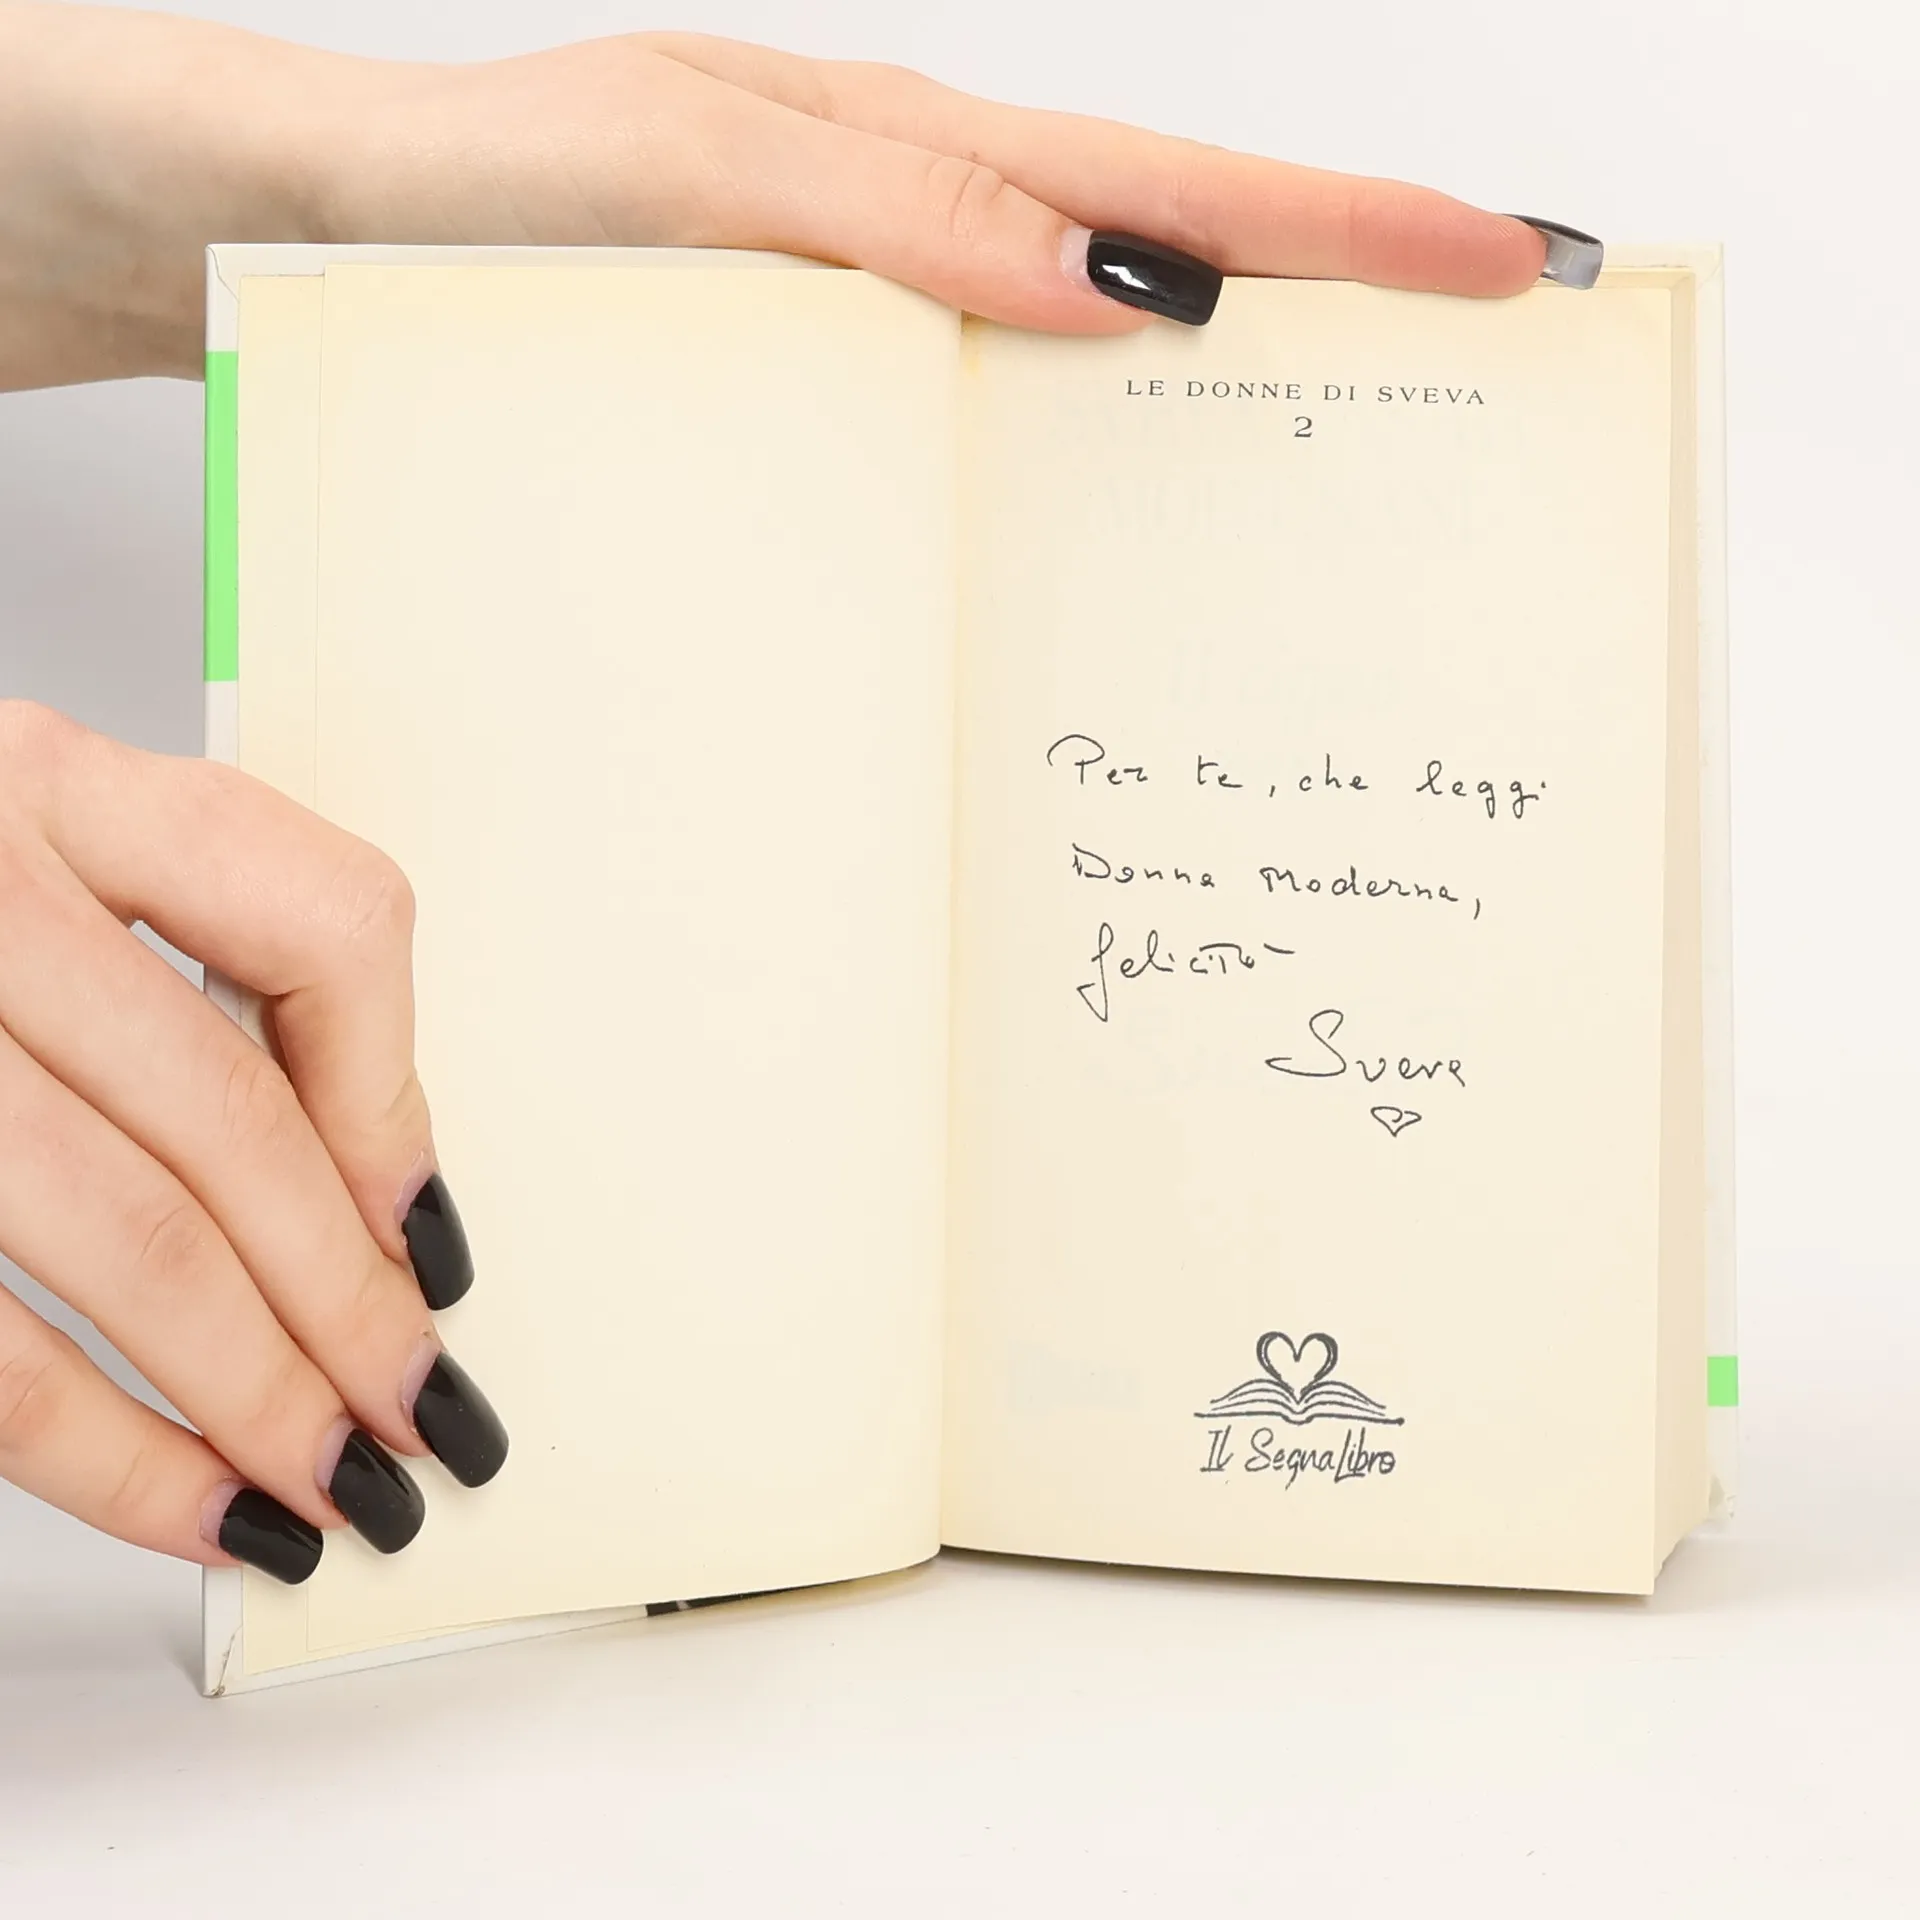 LE DONNE DI SVEVA
2
Per te, che leggi
Donna Moderna,
felicità
Sveva
Il SegnaLibro